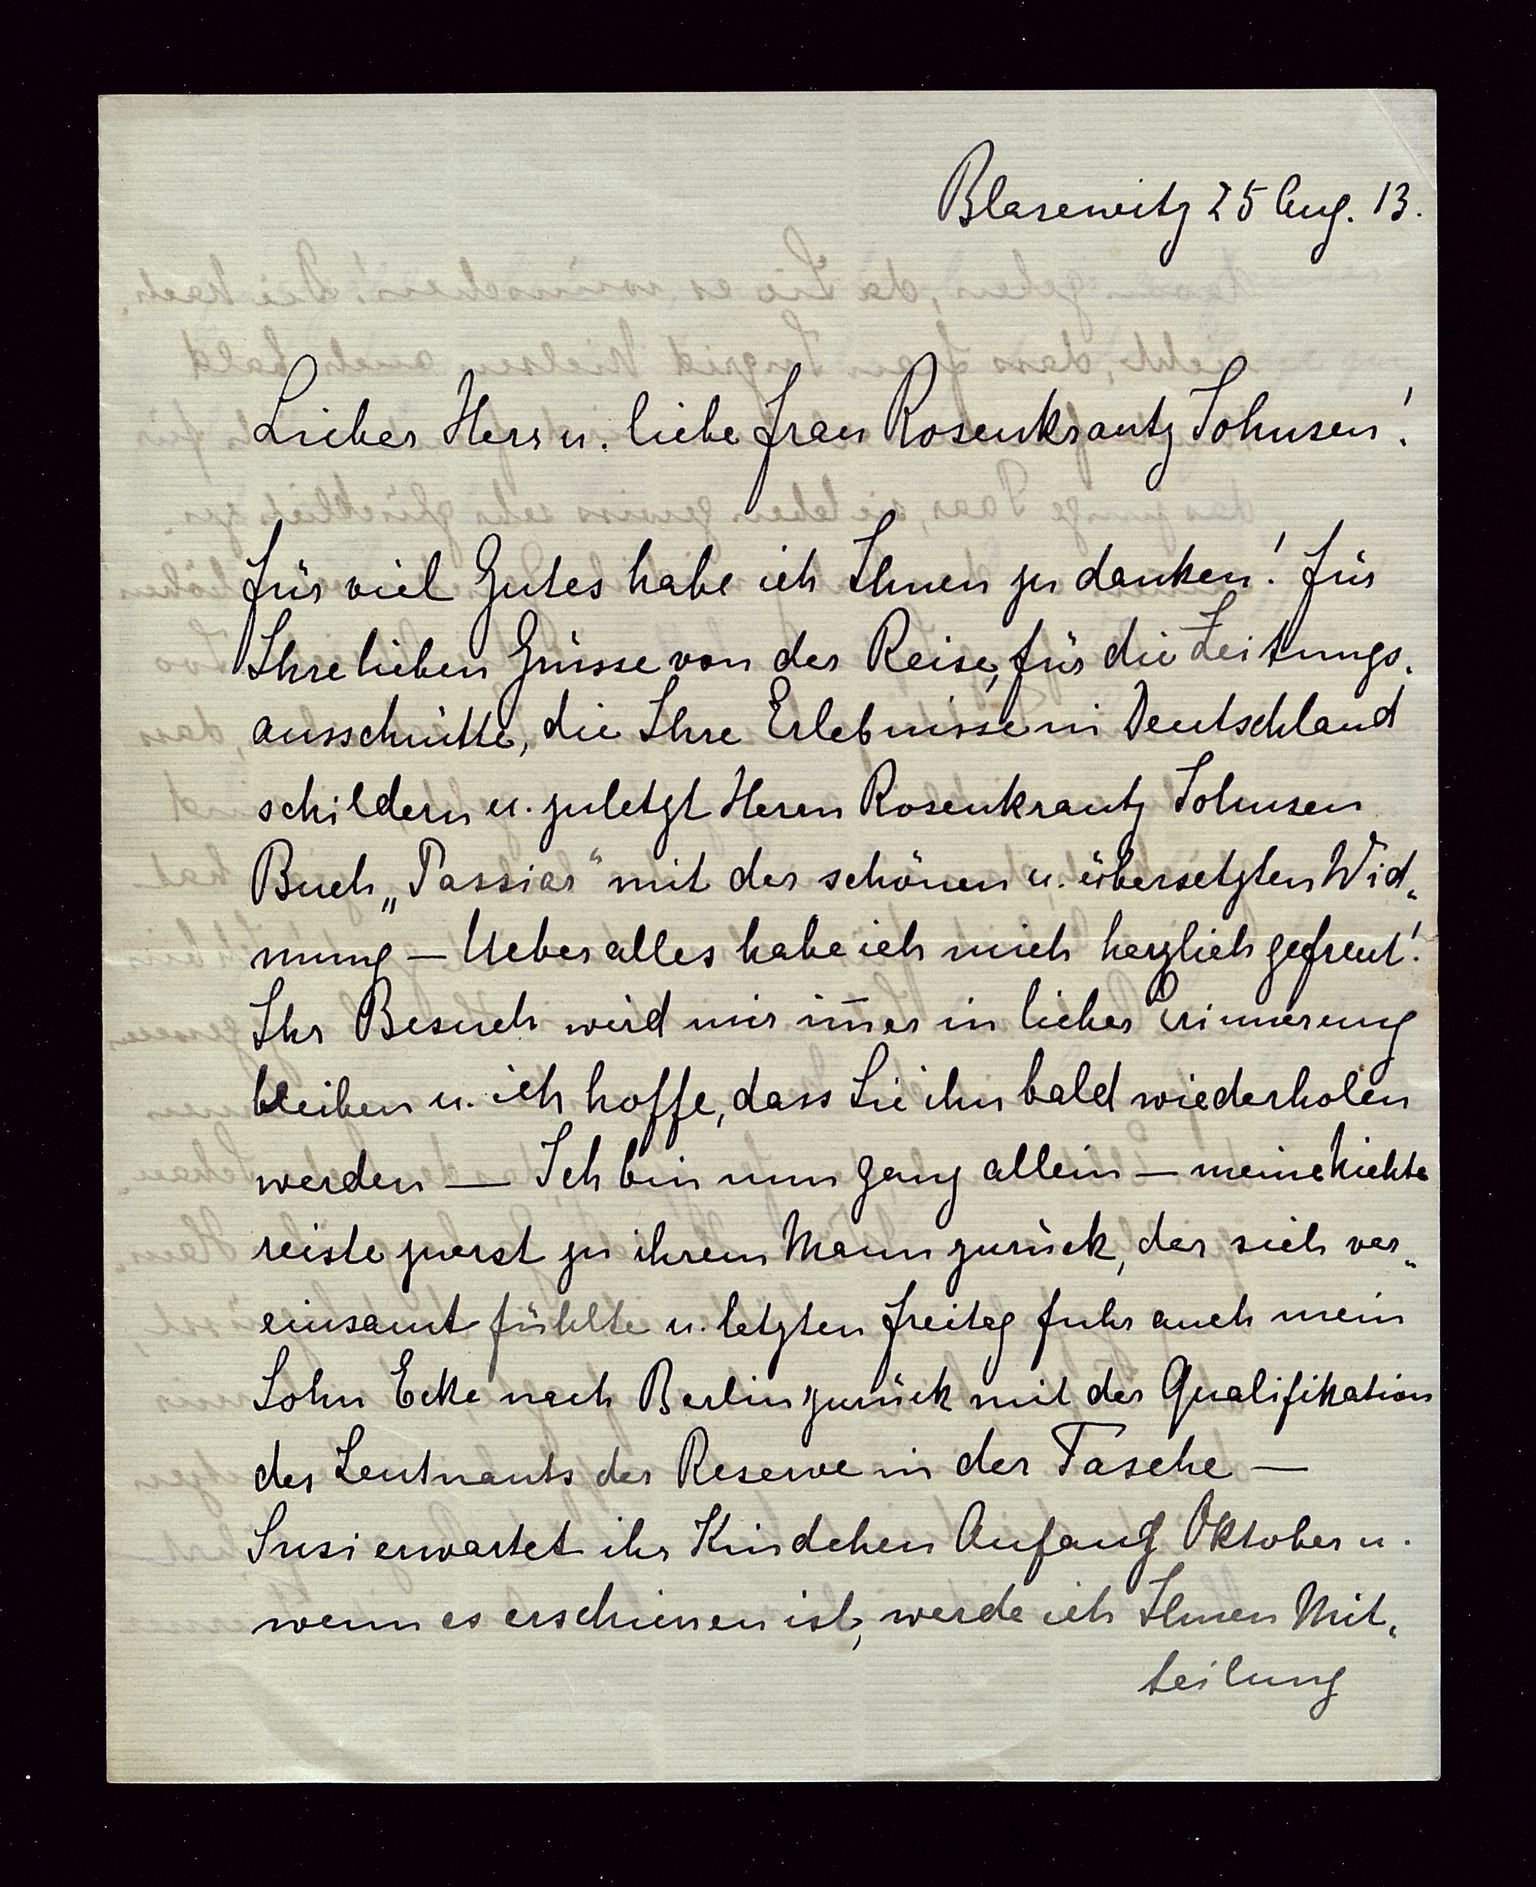 Blasewitz 25 Aug. 13.
Lieber Herr u. liebe Frau Rosenkrantz Johnsen!
Für viel Gutes habe ich Ihnen zu danken! Für
Ihre lieben Grüsse von der Reise, für die Zeitungs-
ausschnitte, die Ihre Erlebnisse in Deutschland
schildern u. zuletzt Herrn Rosenkrantz Johnsen
Buch „Passiar“ mit der schönen u. übersetzten Wid-
mung — Ueber alles habe ich mich herzlich gefreut!
Ihr Besuch wird mir im̅er in lieber Erinnerung
bleiben u. ich hoffe, dass Sie ihn bald wiederholen
werden — Ich bin nun ganz allein — meine Nichte
reiste zuerst zu ihrem Mann zurück, der sich ver-
einsamt fühlte u. letzten Freitag fuhr auch mein
Sohn Ecke nach Berlin zurück mit der Qualifikation
des Leutnants der Reserve in der Tasche —
Susi erwartet ihr Kindchen Anfang Oktober u.
wenn es erschienen ist, werde ich Ihnen Mit-
teilung